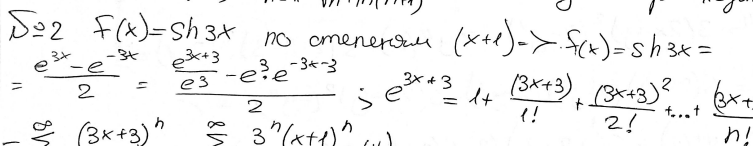 №2 f(x)=sh3x по степеням (x+1)=> f(x)=sh3x=
= (e^{3x}-e^{-3x})/2 = (e^{3x+3}/e^3 - e^3·e^{-3x-3})/2 ; e^{3x+3} = 1+ (3x+3)/1! + (3x+3)^2/2! +...+ (3x+/n!
= ∞ Σ (3x+3)^n ∞ Σ 3^n(x+1)^n